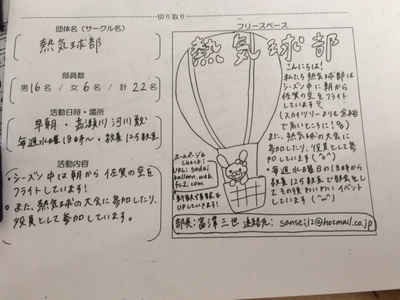 切り取り
団体名（サークル名）
熱気球部
部員数
男16名 / 女6名 / 計22名
活動日時・場所
早朝・嘉瀬川河川敷
毎週水曜18時〜・教養125教室
活動内容
・シーズン中は朝から佐賀の空を
フライトしています!
・また、熱気球の大会に参加したり、
役員として参加しています。
フリースペース
熱気球部
こんにちは!
私たち熱気球部は
シーズン中に朝から
佐賀の空をフライト
しています
(スカイツリーよりも余裕
で高いところに!)
また、熱気球の大会に
参加したり、役員として
参加しています(^o^)
・毎週水曜日の18時から
教養125教室で部会をし
その後わいわいイベント
しています(^w^)
ホームページも
Check!
URL: sadai
balloon.web.
fc2.com
UPしていきます!
部長:富澤三世 連絡先: sansei12@hotmail.co.jp